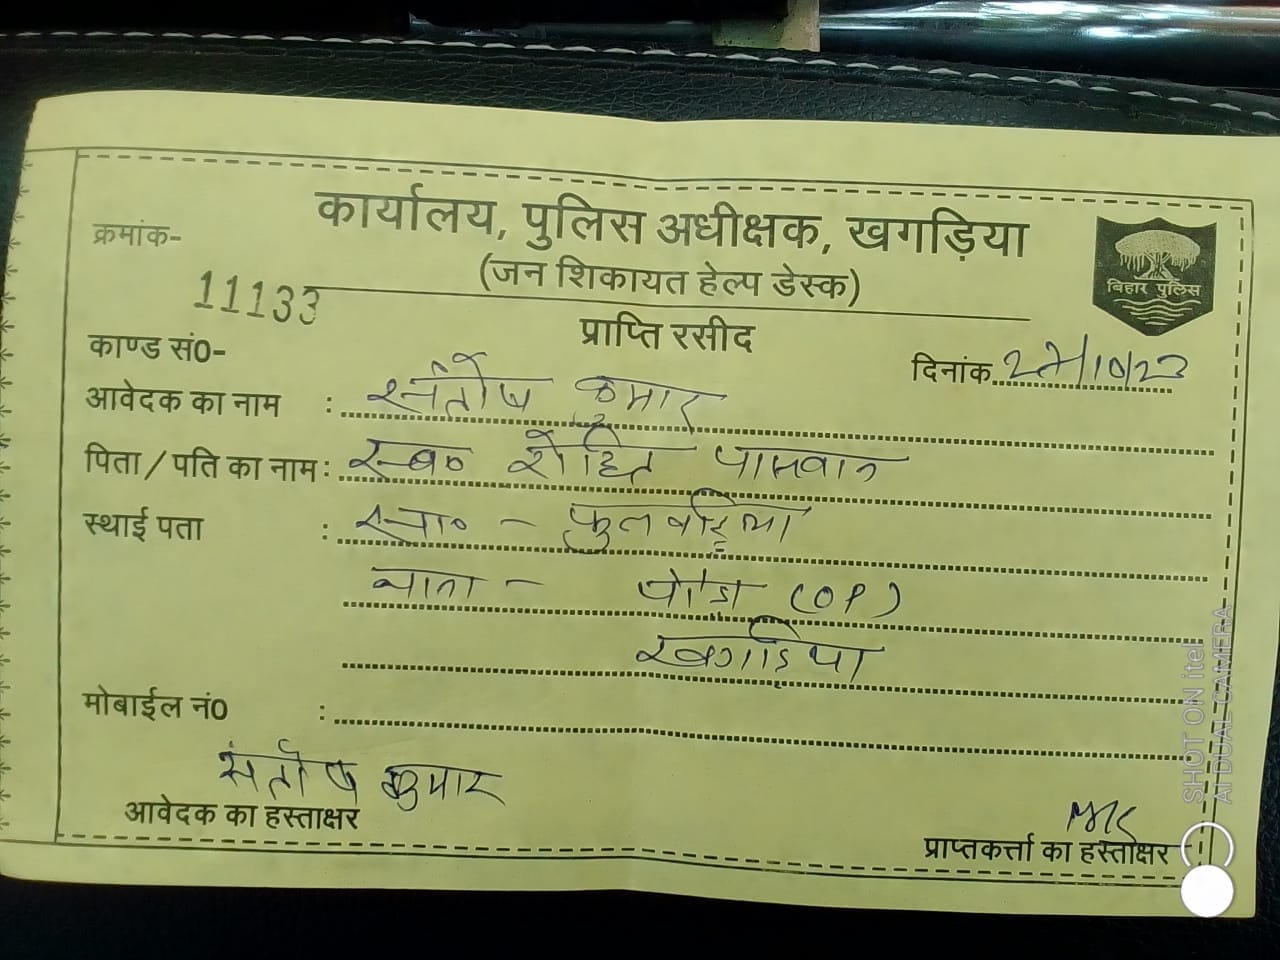 कार्यालय, पुलिस अधीक्षक, खगड़िया
क्रमांक-
(जन शिकायत हेल्प डेस्क)
बिहार पुलिस
11133
प्राप्ति रसीद
काण्ड सं0-
दिनांक 27/10/23
आवेदक का नाम : संतोष कुमार
पिता / पति का नाम : स्व० रोहित पासवान
स्थाई पता : सा० - फुलवड़िया
थाना - (OP)
खगड़िया
मोबाईल नं0 :
संतोष कुमार
आवेदक का हस्ताक्षर
प्राप्तकर्त्ता का हस्ताक्षर
SHOT ON itel
AI DUAL CAMERA